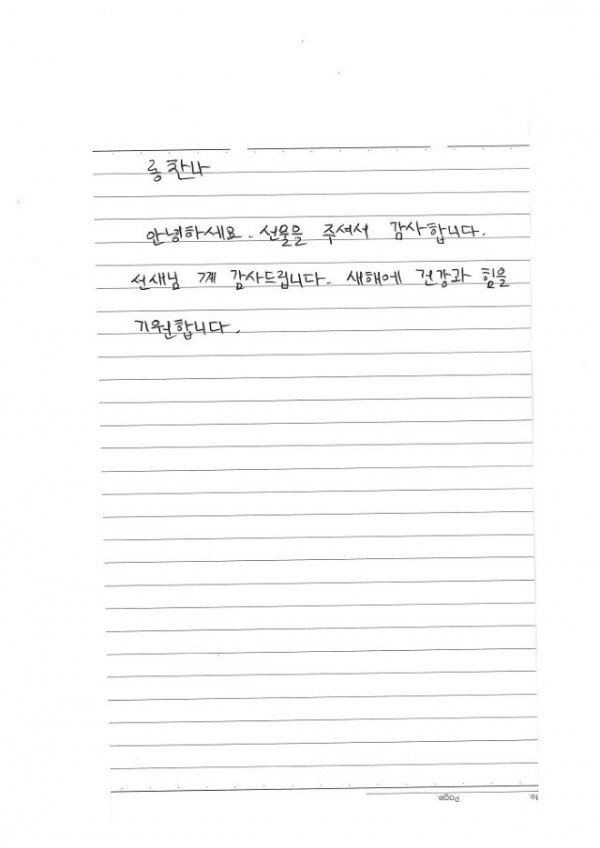 롱 찬나
안녕하세요. 선물을 주셔서 감사합니다.
선새님 께 감사드립니다. 새해에 건강과 힘을
기원합니다.
te.
Page.